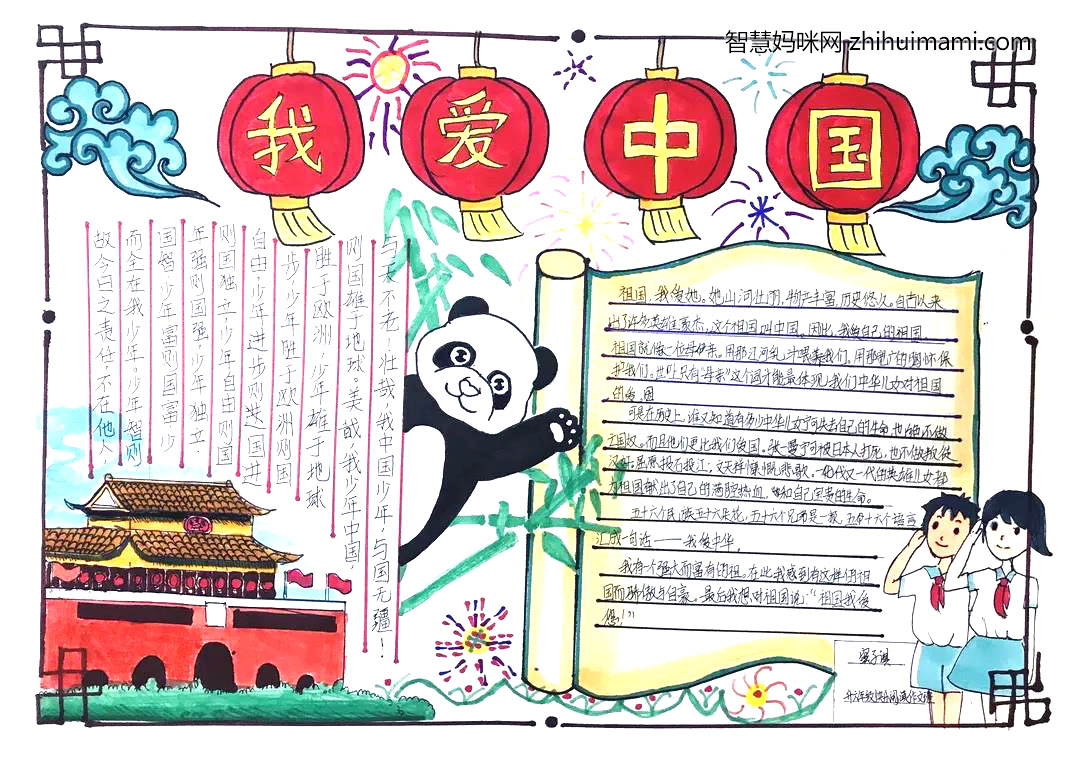 智慧妈咪网-zhihuimami.com
我爱中国
故今日之责任,不在他人
而全在我少年。少年智则
国智,少年富则国富,少
年强则国强,少年独立
则国独立,少年自由则国
自由,少年进步则进国进
步,少年胜于欧洲则国
胜于欧洲,少年雄于地球
则国雄于地球。美哉,我少年中国,
与天不老!壮哉,我中国少年,与国无疆!
祖国,我爱她。她山河壮丽,物产丰富,历史悠久。自古以来
出了许多英雄豪杰,这个祖国叫中国,因此,我爱自己的祖国。
祖国就像一位母亲。用那江河乳汁喂养我们,用那宽广的胸怀保
护我们。世上只有“母亲”这个词才能最体现我们中华儿女对祖国
的爱。
可是在历史上,谁又知道有多少中华儿女宁可失去自己的生命也不做
亡国奴。而且他们更比我们爱国。张一曼宁可被日本人打死,也不做叛徒
汉奸;屈原投石投江;文天祥慷慨悲歌。一代又一代的英雄儿女都
为祖国献出了自己的满腔热血,和自己宝贵的生命。
五十六个民族五十六朵花,五十六个兄弟是一家,五十六个语言
汇成一句话——我爱中华。
我有一个强大而富有的祖,在此我感到有这样的祖
国而骄傲与自豪。最后我想对祖国说:“祖国我爱
您!”